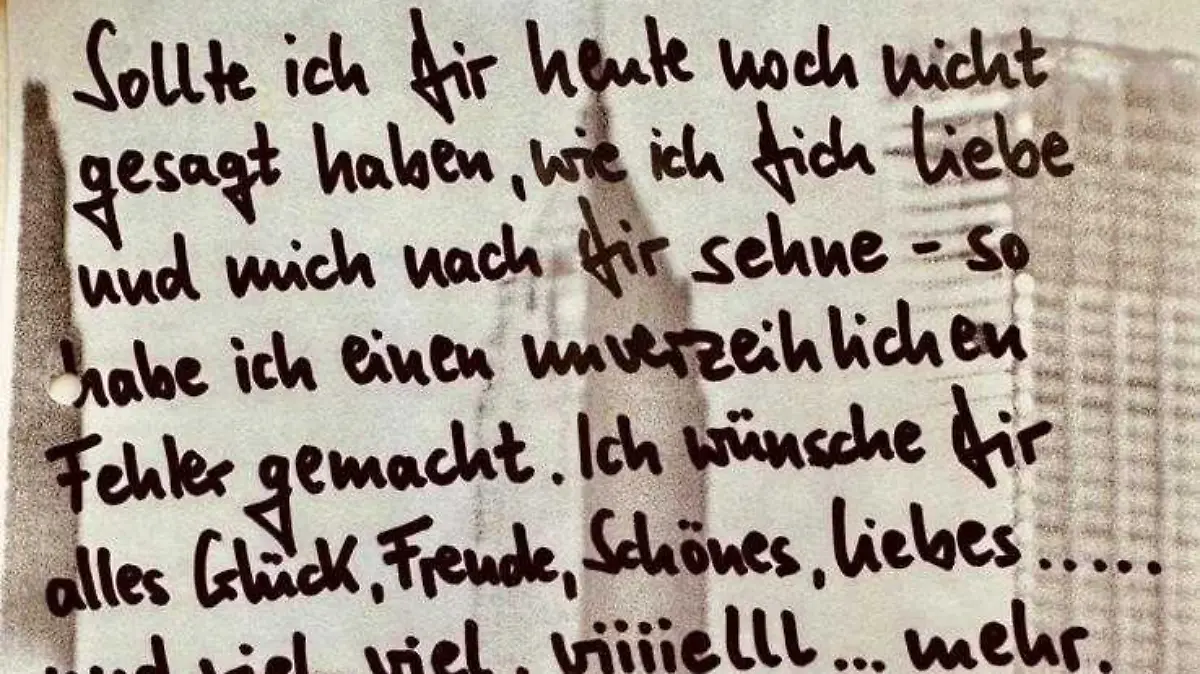 Sollte ich dir heute noch nicht
gesagt haben, wie ich dich liebe
und mich nach dir sehne - so
habe ich einen unverzeihlichen
Fehler gemacht. Ich wünsche dir
alles Glück, Freude, Schönes, liebes.....
und viel, viel, viiiielll... mehr.